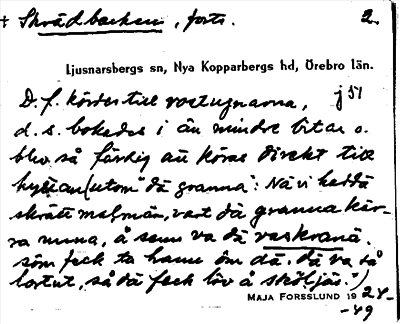 + Skrädbacken, forts. 2.
Ljusnarsbergs sn, Nya Kopparbergs hd, Örebro län.
D. f. kördes till rostugnarna, j 51
d. s. bokades i än mindre bitar o.
blev så färdig att köras direkt till
hyttan (utom "dä granna": Nä vi haddä
skrätt malmän, vart dä granna kär-
ra unna, å sen va dä vaskranä.
söm feck ta hann öm dä, dä va så
lortut, så dä feck löv å sköljäs.")
MAJA FORSSLUND 19 24-
-49